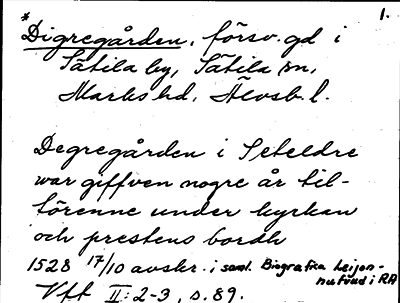 1.
* Digregården, försv. gd i
Sätila by, Sätila sn,
Marks hd, Älvsb. l.
Degregården i Seteldre
war giffven nogre år til-
förenne under kyrkan
och prestens bordh
1528 17/10 avskr. i saml. Biografica Leijon-
hufvud i RA
Vft II: 2-3, s. 89.